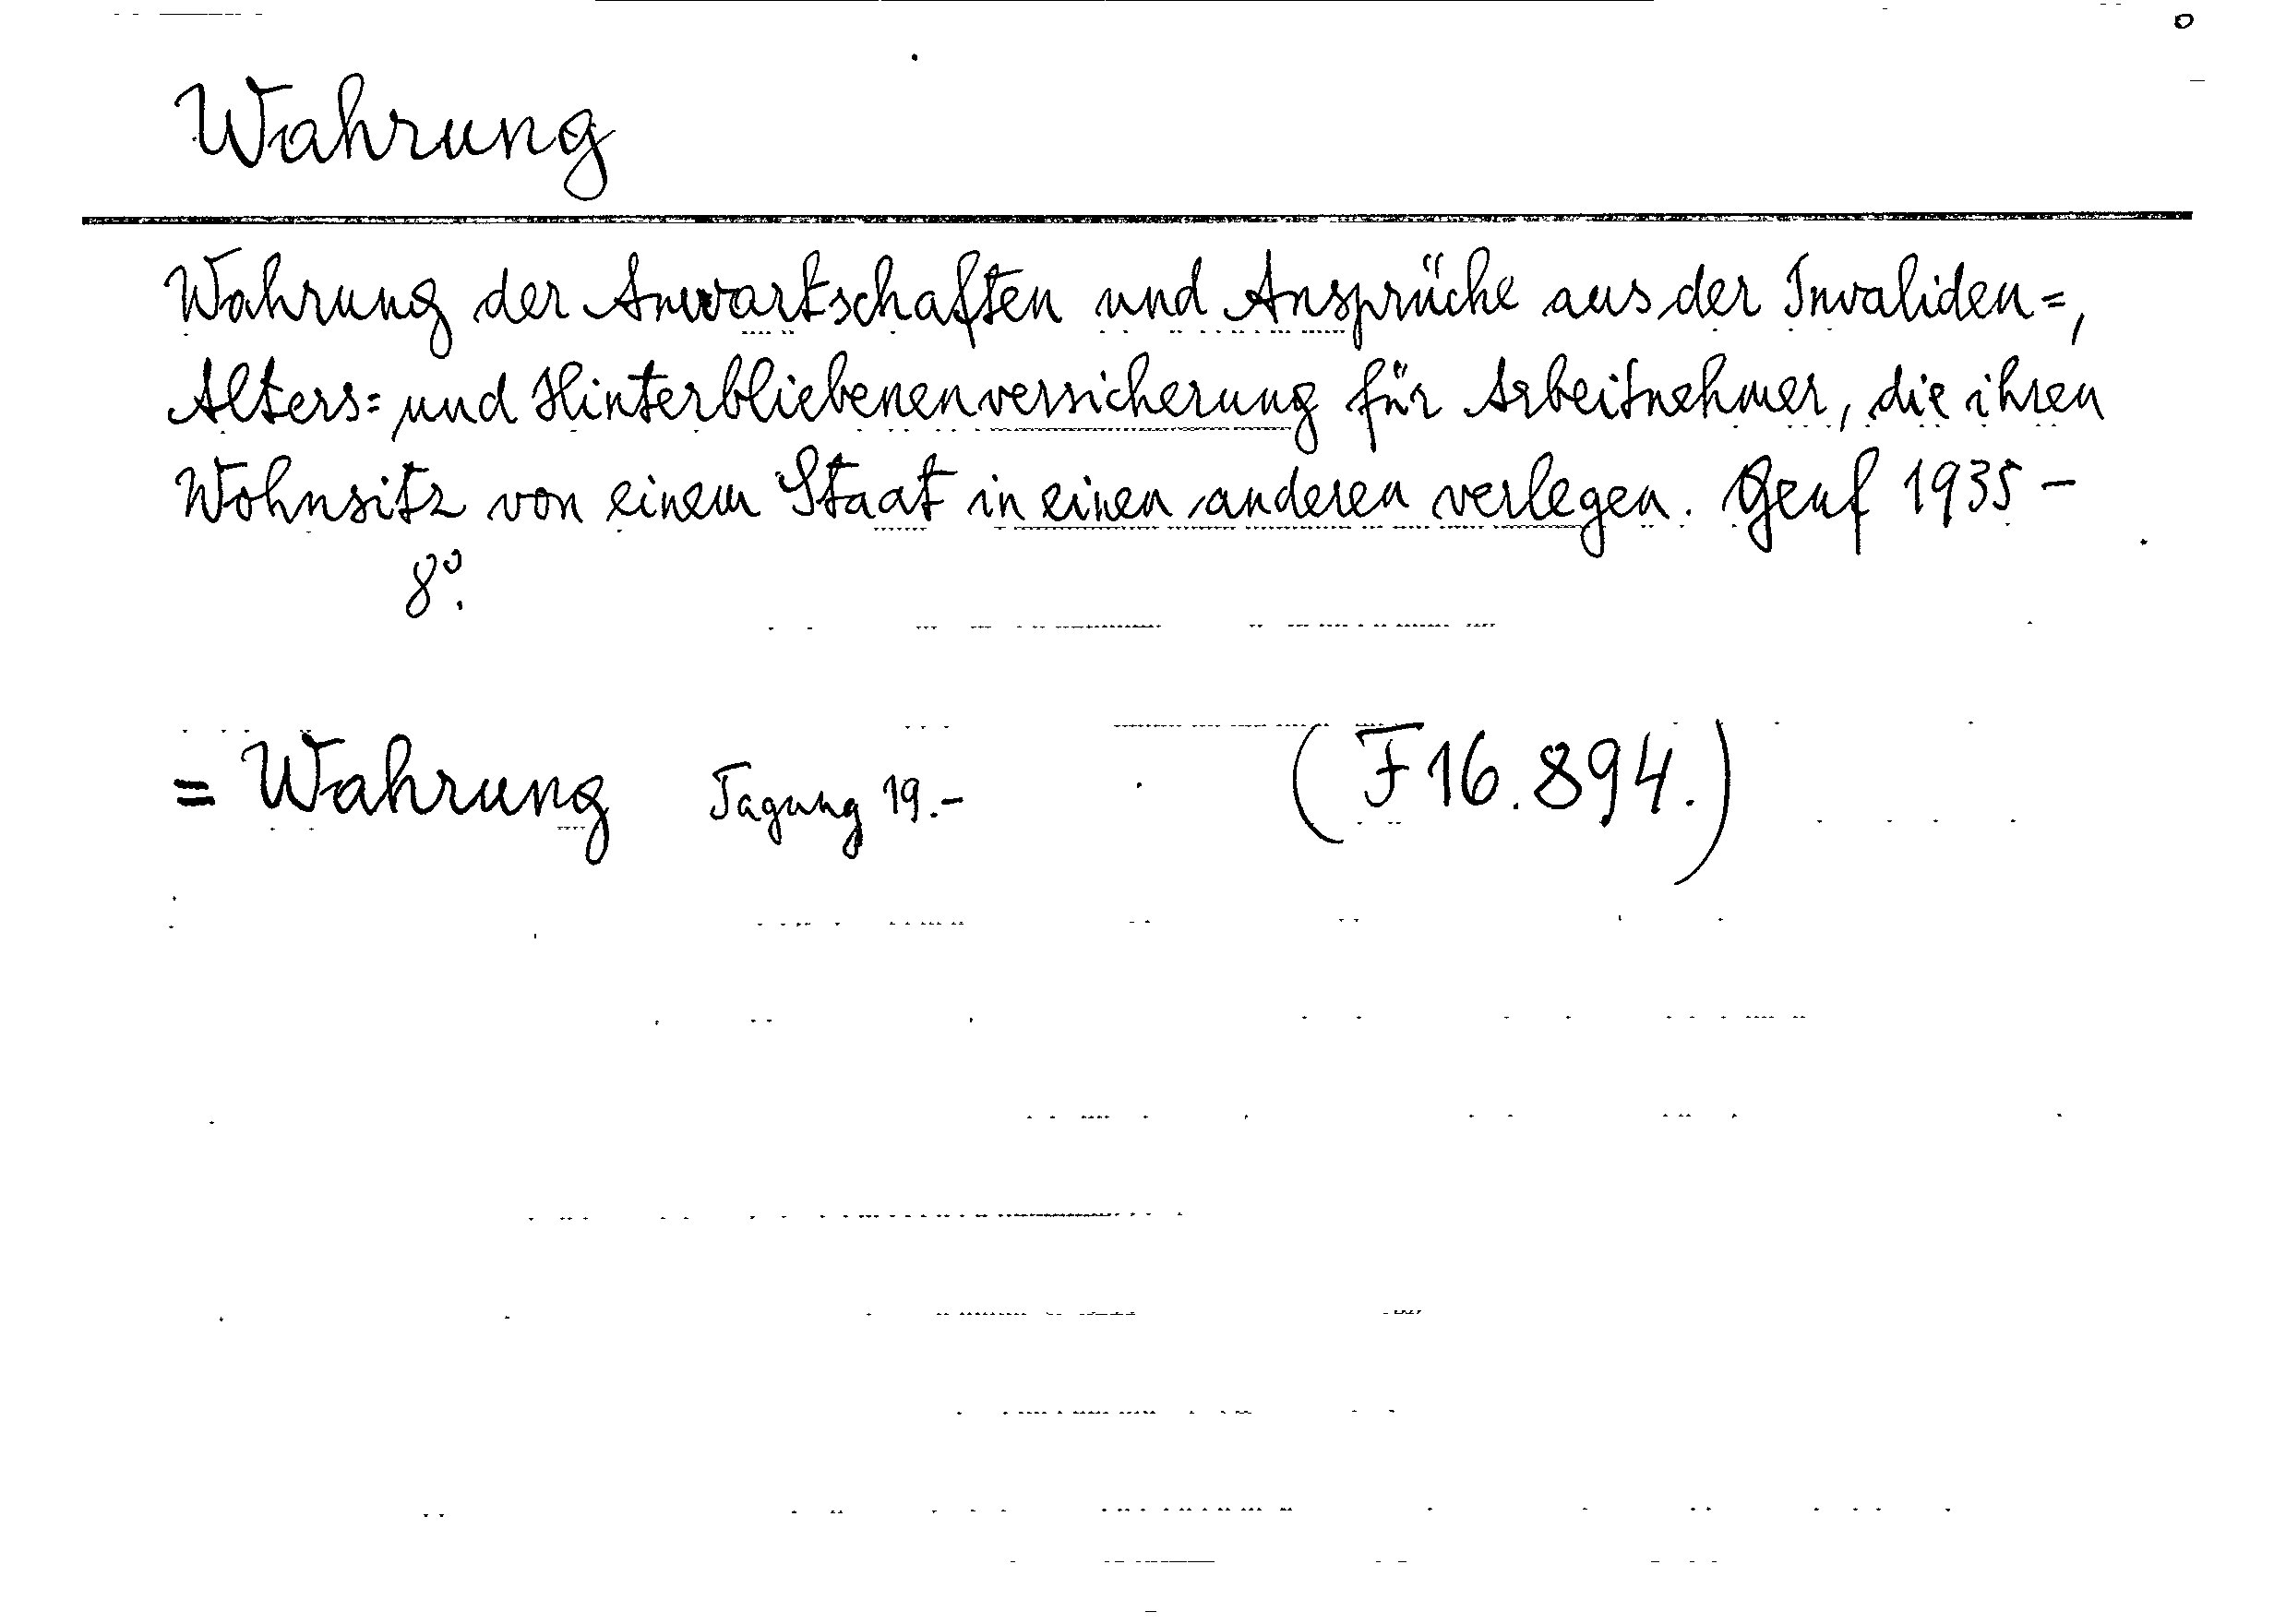 Wahrung
Wahrung der Anwartschaften und Ansprüche aus der Invaliden=,
Alters= und Hinterbliebenenversicherung für Arbeitnehmer, die ihren
Wohnsitz von einem Staat in einen anderen verlegen. Genf 1935 -
8°.
= Wahrung Tagung 19.- (F 16.894.)